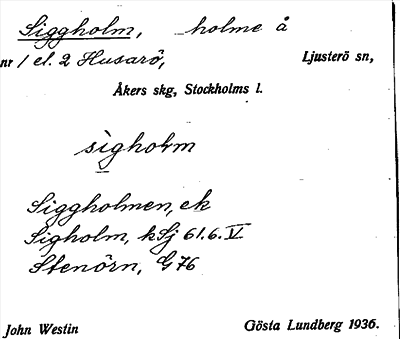 Siggholm, holme å
nr 1 el. 2 Husarö, Ljusterö sn,
Åkers skg, Stockholms l.
sìgholm
Siggholmen, ek
Sigholm, kSj 61.6.V
Stenörn, G 76
John Westin Gösta Lundberg 1936.